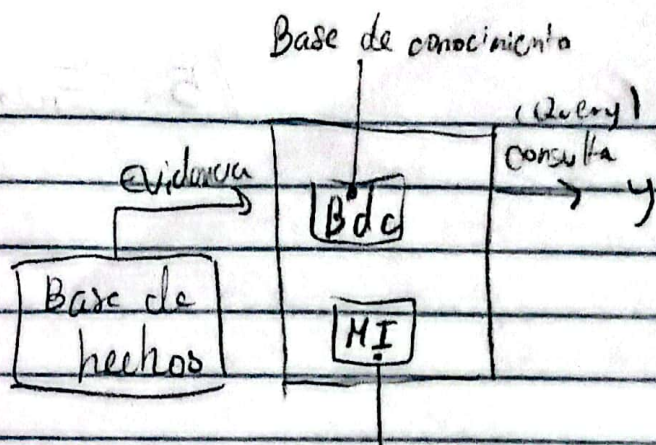 Base de conocimiento
(Query)
consulta
Evidencia
y
BdC
Base de
hechos
MI